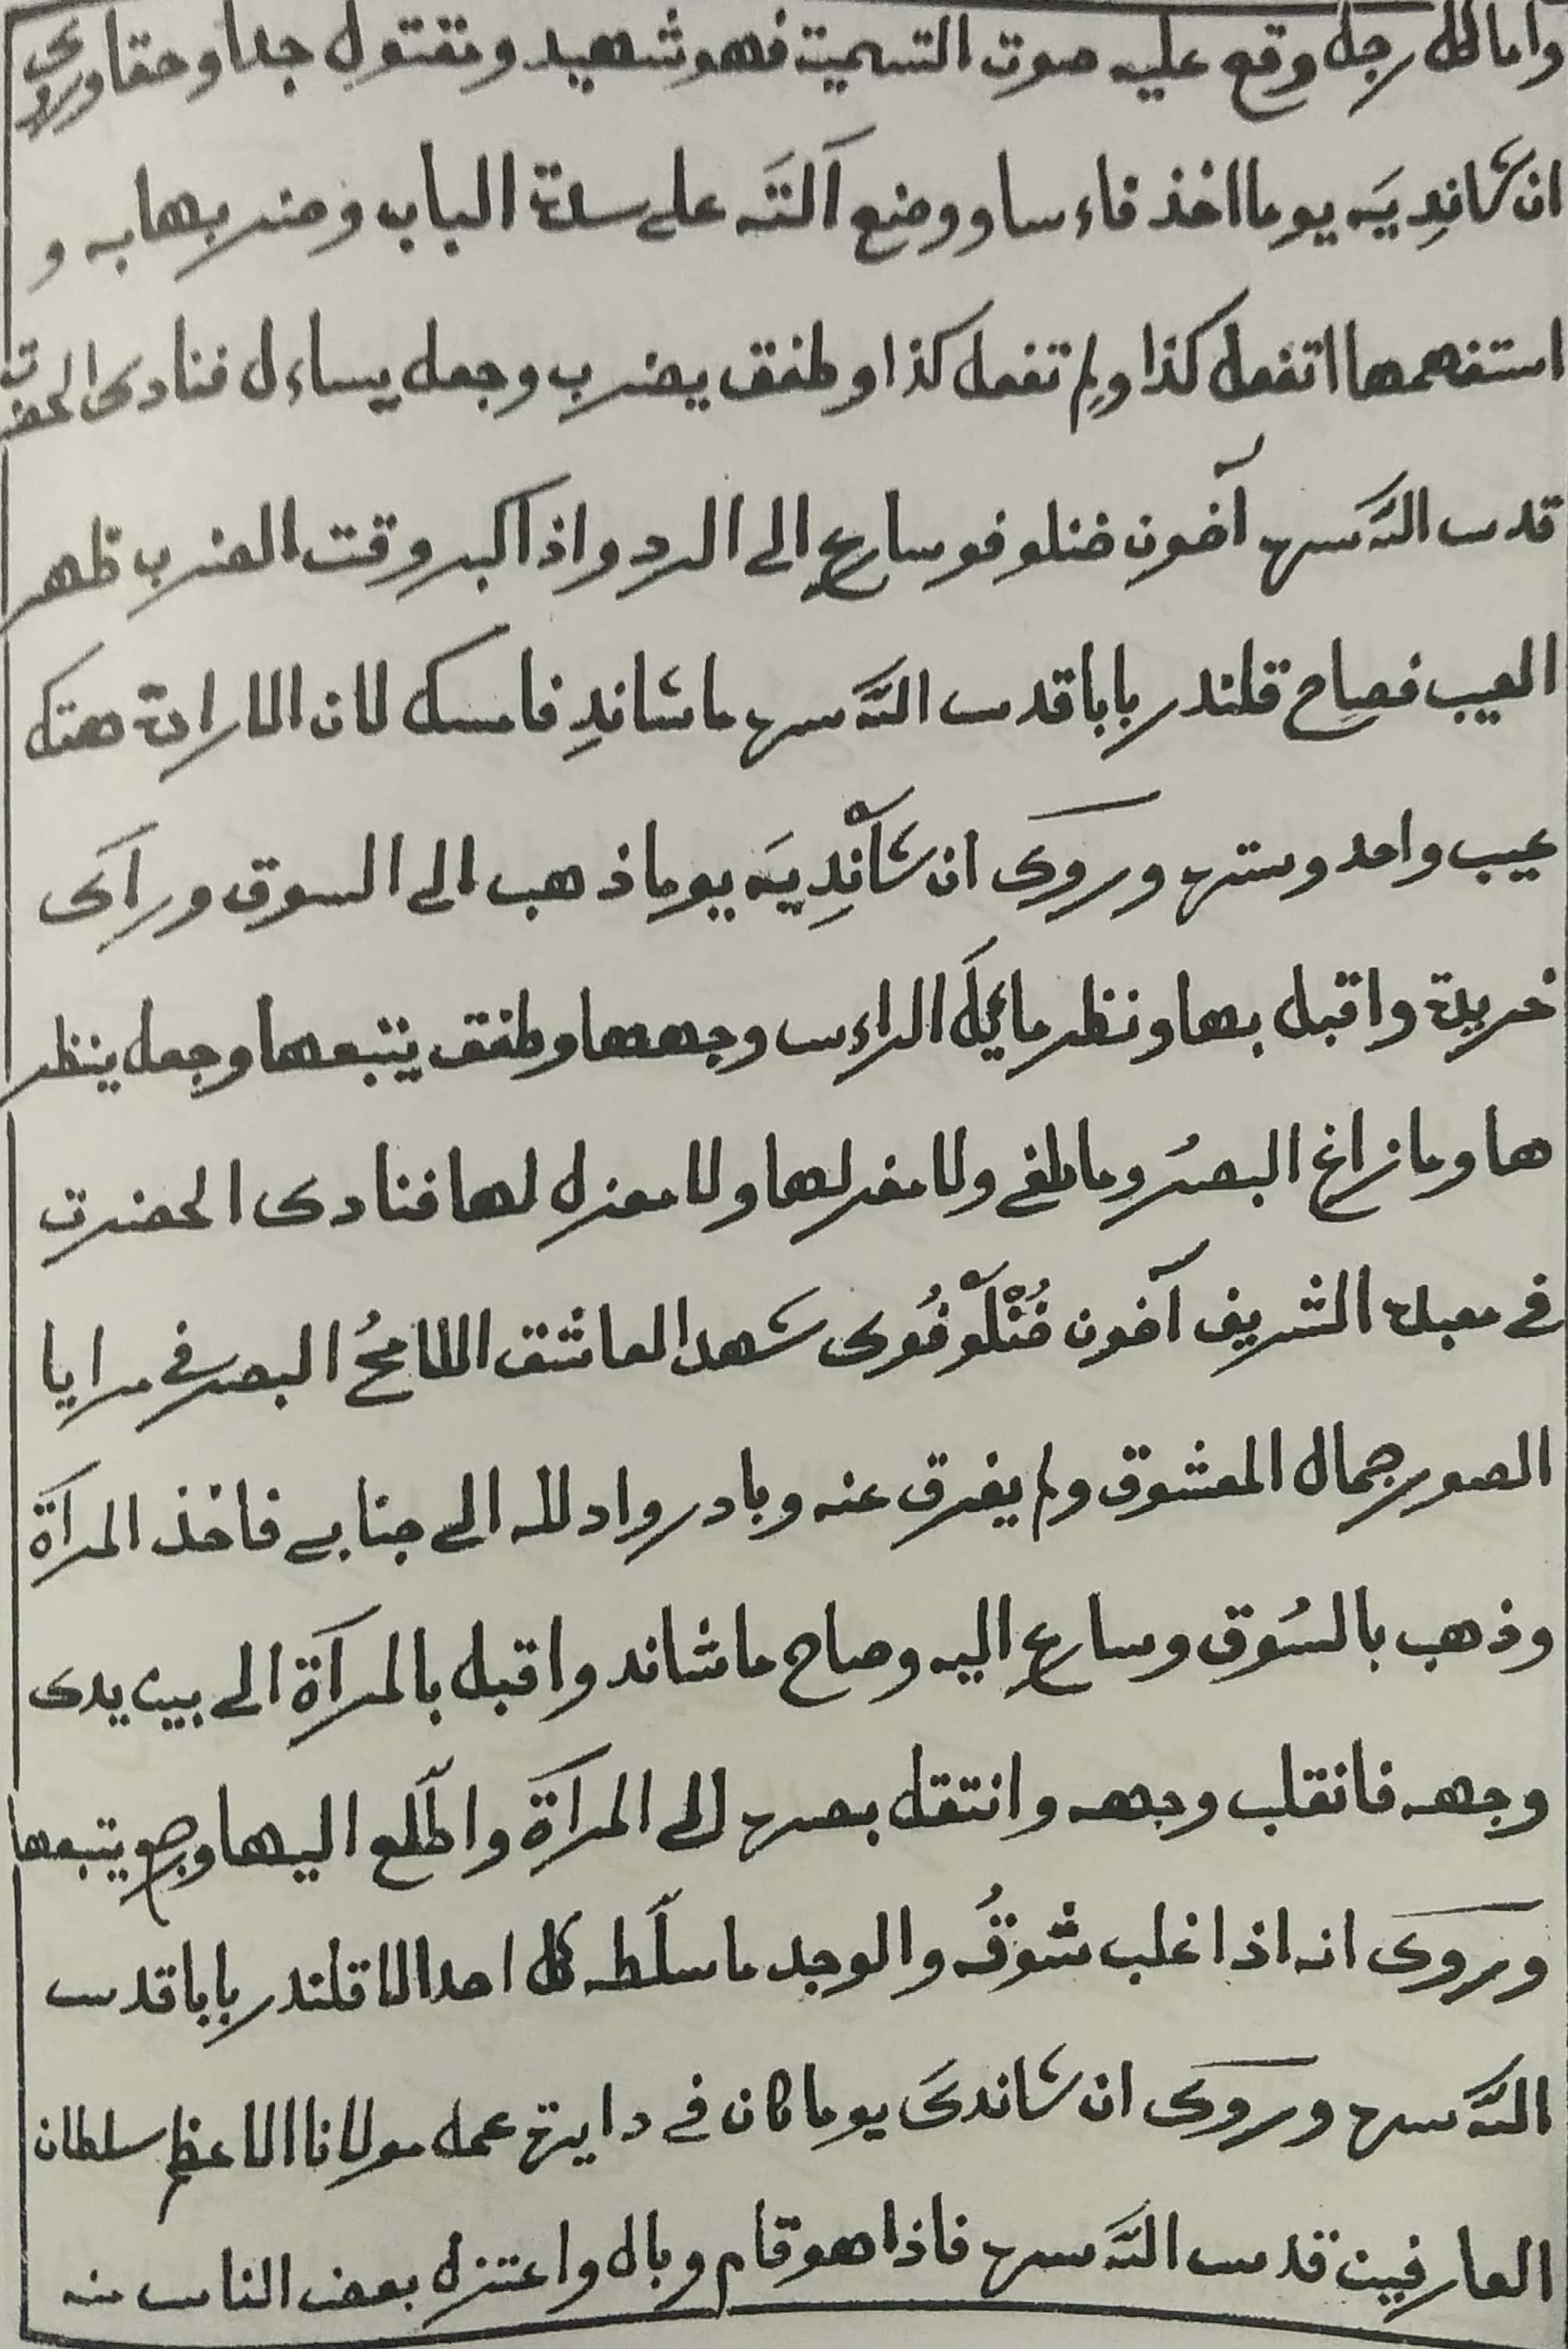 واما كل رجل وقع عليه صوت التسمية فهو شهيد ومقتول جدا وحقا وروى
ان شَانْدِيَه يوما اخذ فاءسا ووضع آلتَه على سدة الباب وضربها به و
استفهمها اتفعل كذا ولِم تفعل كذا وطفق يضرب وجعل يساءل فنادى الحضرت
قدس الله سره آخون خنلو فوسارع الى الرد واذا اكبر وقت الضرب ظهر
العيب فصاح قلندر بابا قدس الله سره ماشاندِ فامسك لان الارادة هتك
عيب واحد وستره وروى ان شَانْدِيَه يوما ذهب الى السوق ورآى
خريدة واقبل بها ونظر مائلَ الراءس وجهها وطفق يتبعها وجعل ينظر
ها وما زاغ البصرُ وما طغى ولا مفر لها ولا معزل لها فنادى الحضرت
فى معبده الشريف آخون خُنْلَوْ فُوى شهد العاشق اللامحُ البصر فى مرايا
الصور جمال المعشوق ولم يفرق عنه وبادر وادلله الى جنابى فاخذ المرآة
وذهب بالسُوق وسارع اليه وصاح ماشاند واقبل بالمرآة الى بين يدى
وجهه فانقلب وجهه وانتقل بصره الى المرآة واطّلع اليها ورجع يتبعها
وروى انه اذا غلب شوقُه والوجد ما سلّطه كل احد الا قلندر بابا قدس
الله سره وروى ان شاندىَ يوما كان فى دايرة عمل مولانا الاعظم سلطان
العارفين قدس الله سره فاذا هو قام وبال واعتزل بعض الناس منه